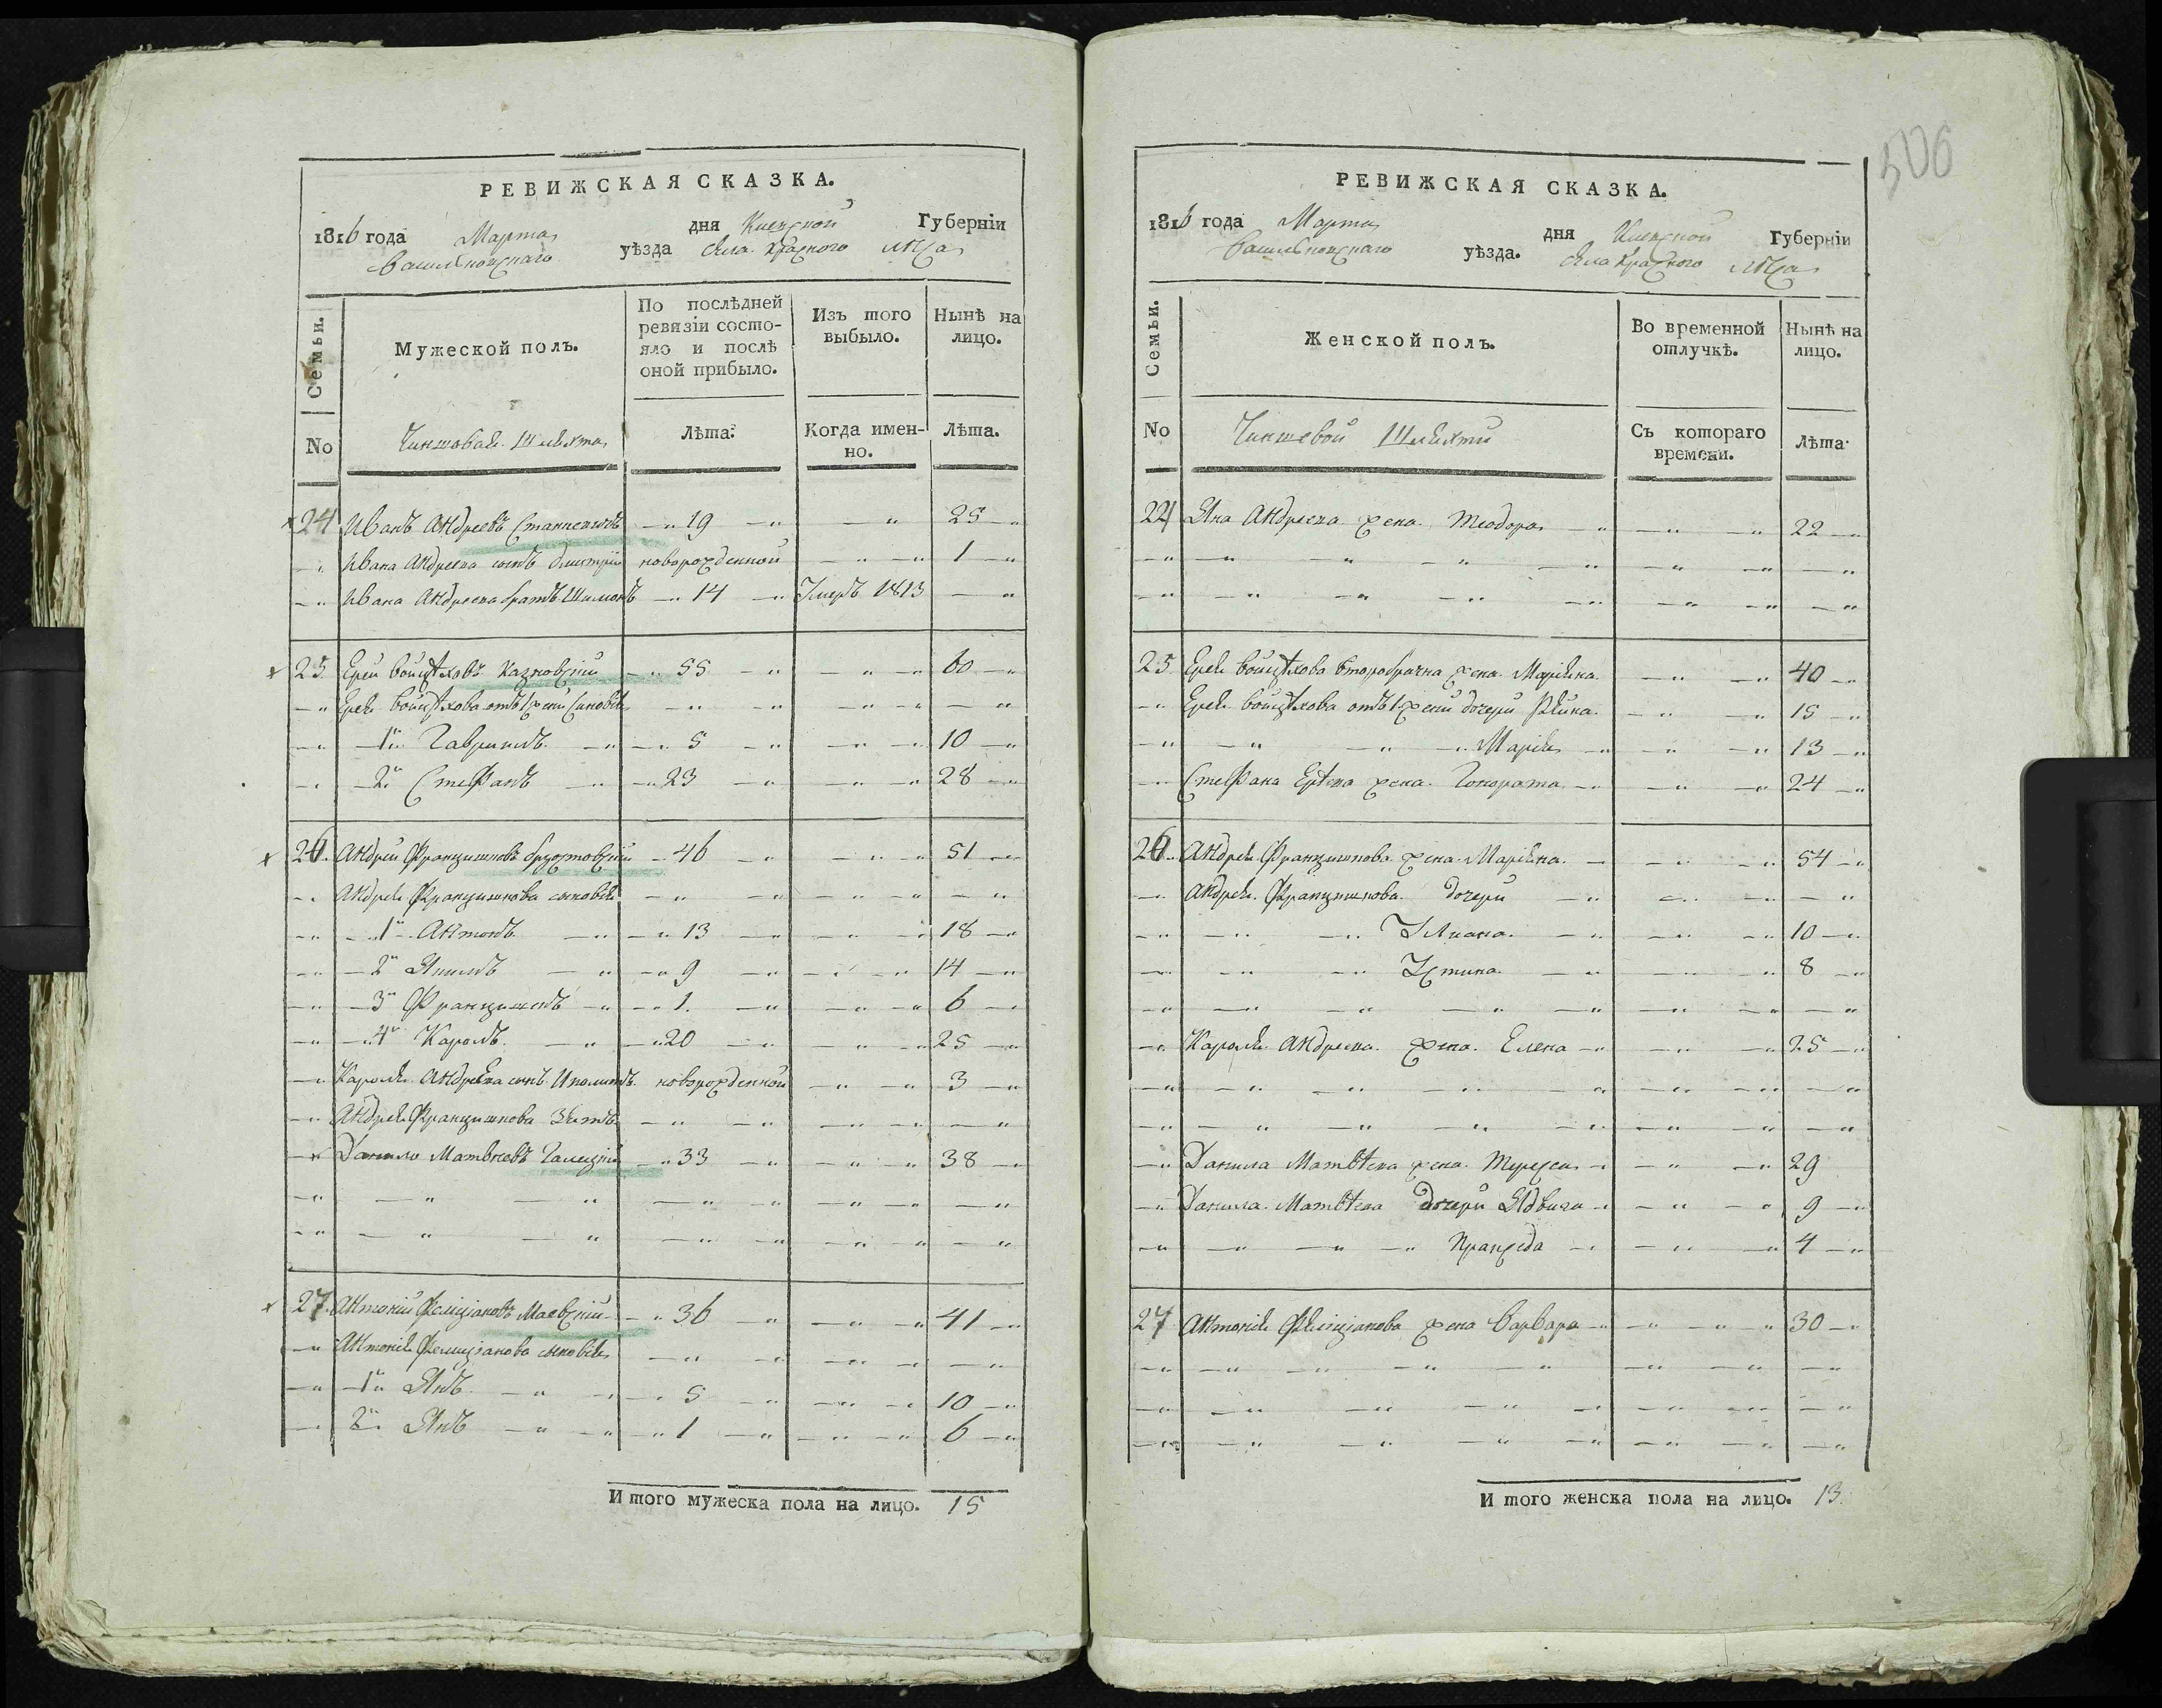 РЕВИЖСКАЯ СКАЗКА.
1816 года Марта дня Киевской Губернїи
Васильковскаго уѣзда села Красного лѣса
Семьи.
Мужеской полъ.
По послѣдней ревизїи состояло и послѣ оной прибыло.
Изъ того выбыло.
Нынѣ на лицо.
No Чиншовая Шляхта Лѣта. Когда именно. Лѣта.
24 Иванъ Андреевъ 19 25
Ивана Андреева сынъ Дмитрїй новорожденной 1
Ивана Андреева братъ Шимонъ 14 Умеръ 1813
25 Ерей Войцѣховъ Казновскїй 55 60
Ерея Войцѣхова отъ 1 жены сыновья
1й Гаврилъ 5 10
2й Стефанъ 23 28
26 Андрей Францишковъ Бржозовскїй 46 51
Андрея Францишкова сыновья
1й Антонъ 13 18
2й 9 14
3й Францишекъ 1 6
4й Кароль 20 25
Кароля Андреева сынъ Иполитъ новорожденной 3
Андрея Францишкова Зять
Данило Матвѣевъ Галецкїй 33 38
27 Антонїй Фелицїановъ Маевскїй 36 41
Антонїя Фелицїанова сыновья
1й Янъ 5 10
2й Янъ 1 6
И того мужеска пола на лицо. 15
506
РЕВИЖСКАЯ СКАЗКА.
1816 года Марта дня Киевской Губернїи
Васильковскаго уѣзда. села Красного лѣса
Семьи.
Женской полъ.
Во временной отлучкѣ.
Нынѣ на лицо.
No Чиншевой Шляхти Съ котораго времени. Лѣта
24 Яна Андреева жена Теодора 22
25 Ерея Войцѣхова второбрачна жена Марїяна 40
Ерея Войцѣхова отъ 1 жены дочери 15
Марїя 13
Стефана Ерѣева жена Гонората 24
26 Андрея Францишкова жена Марїяна 54
Андрея Францишкова дочери
Улиана 10
Устина 8
Кароля Андреева жена Елена 25
Данила Матвѣева жена Тереса 29
Данила Матвѣева дочери Ядвига 9
Пракседа 4
27 Антонїя Фелицїанова жена Варвара 30
И того женска пола на лицо. 13